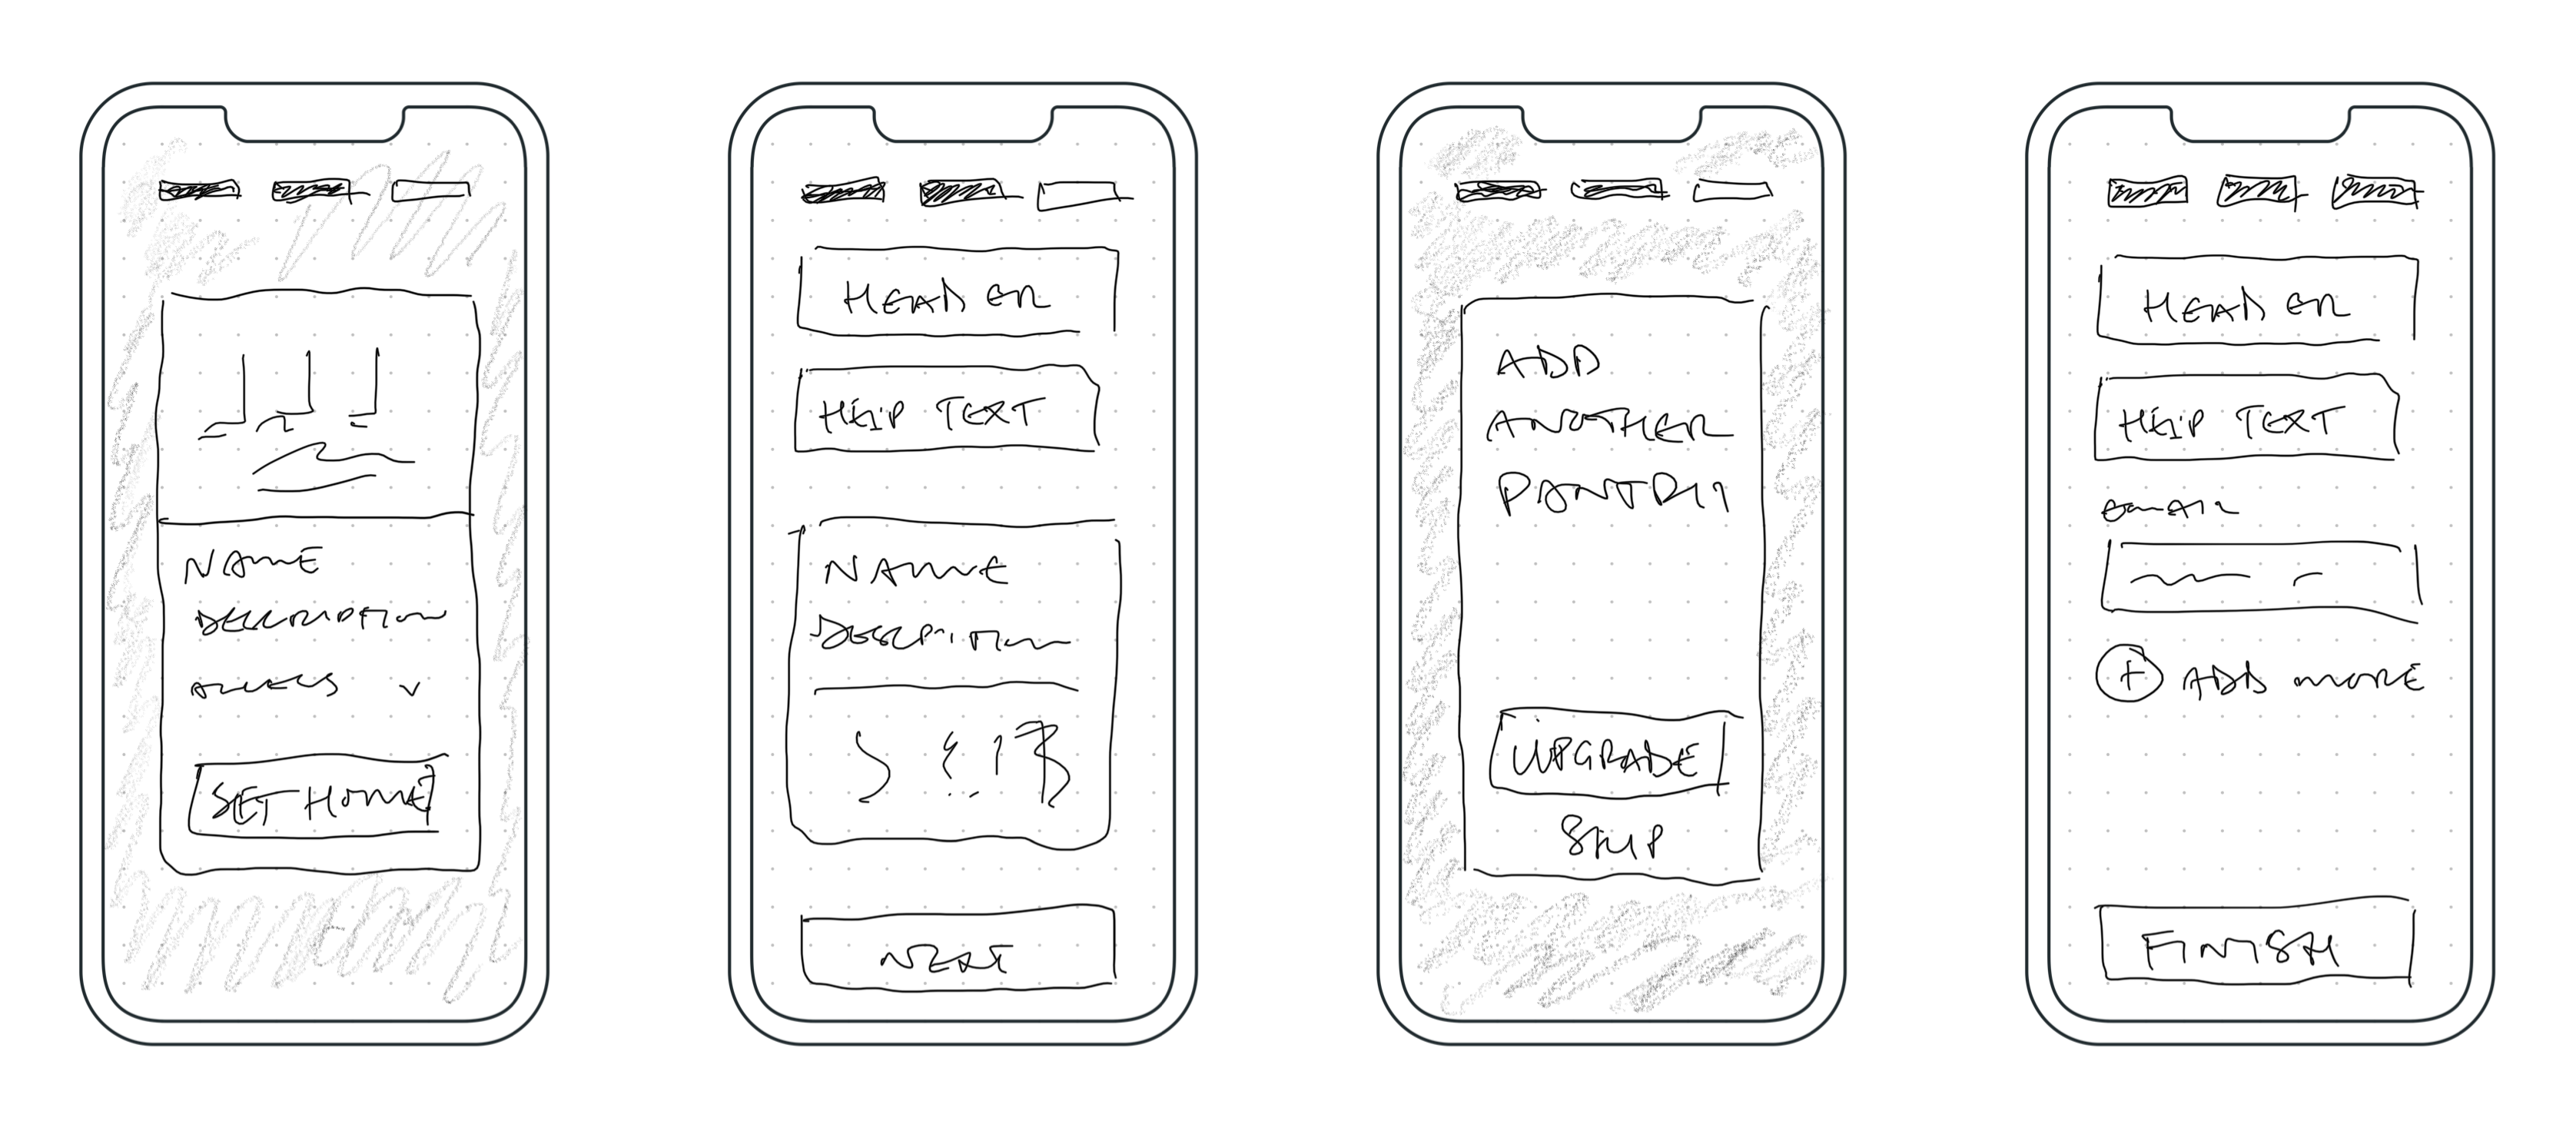 NAME
DESCRIPTION
SET HOME
HEADER
HELP TEXT
NAME
DESCRIPTION
NEXT
ADD
ANOTHER
PANTRY
UPGRADE
SKIP
HEADER
HELP TEXT
EMAIL
+ ADD MORE
FINISH